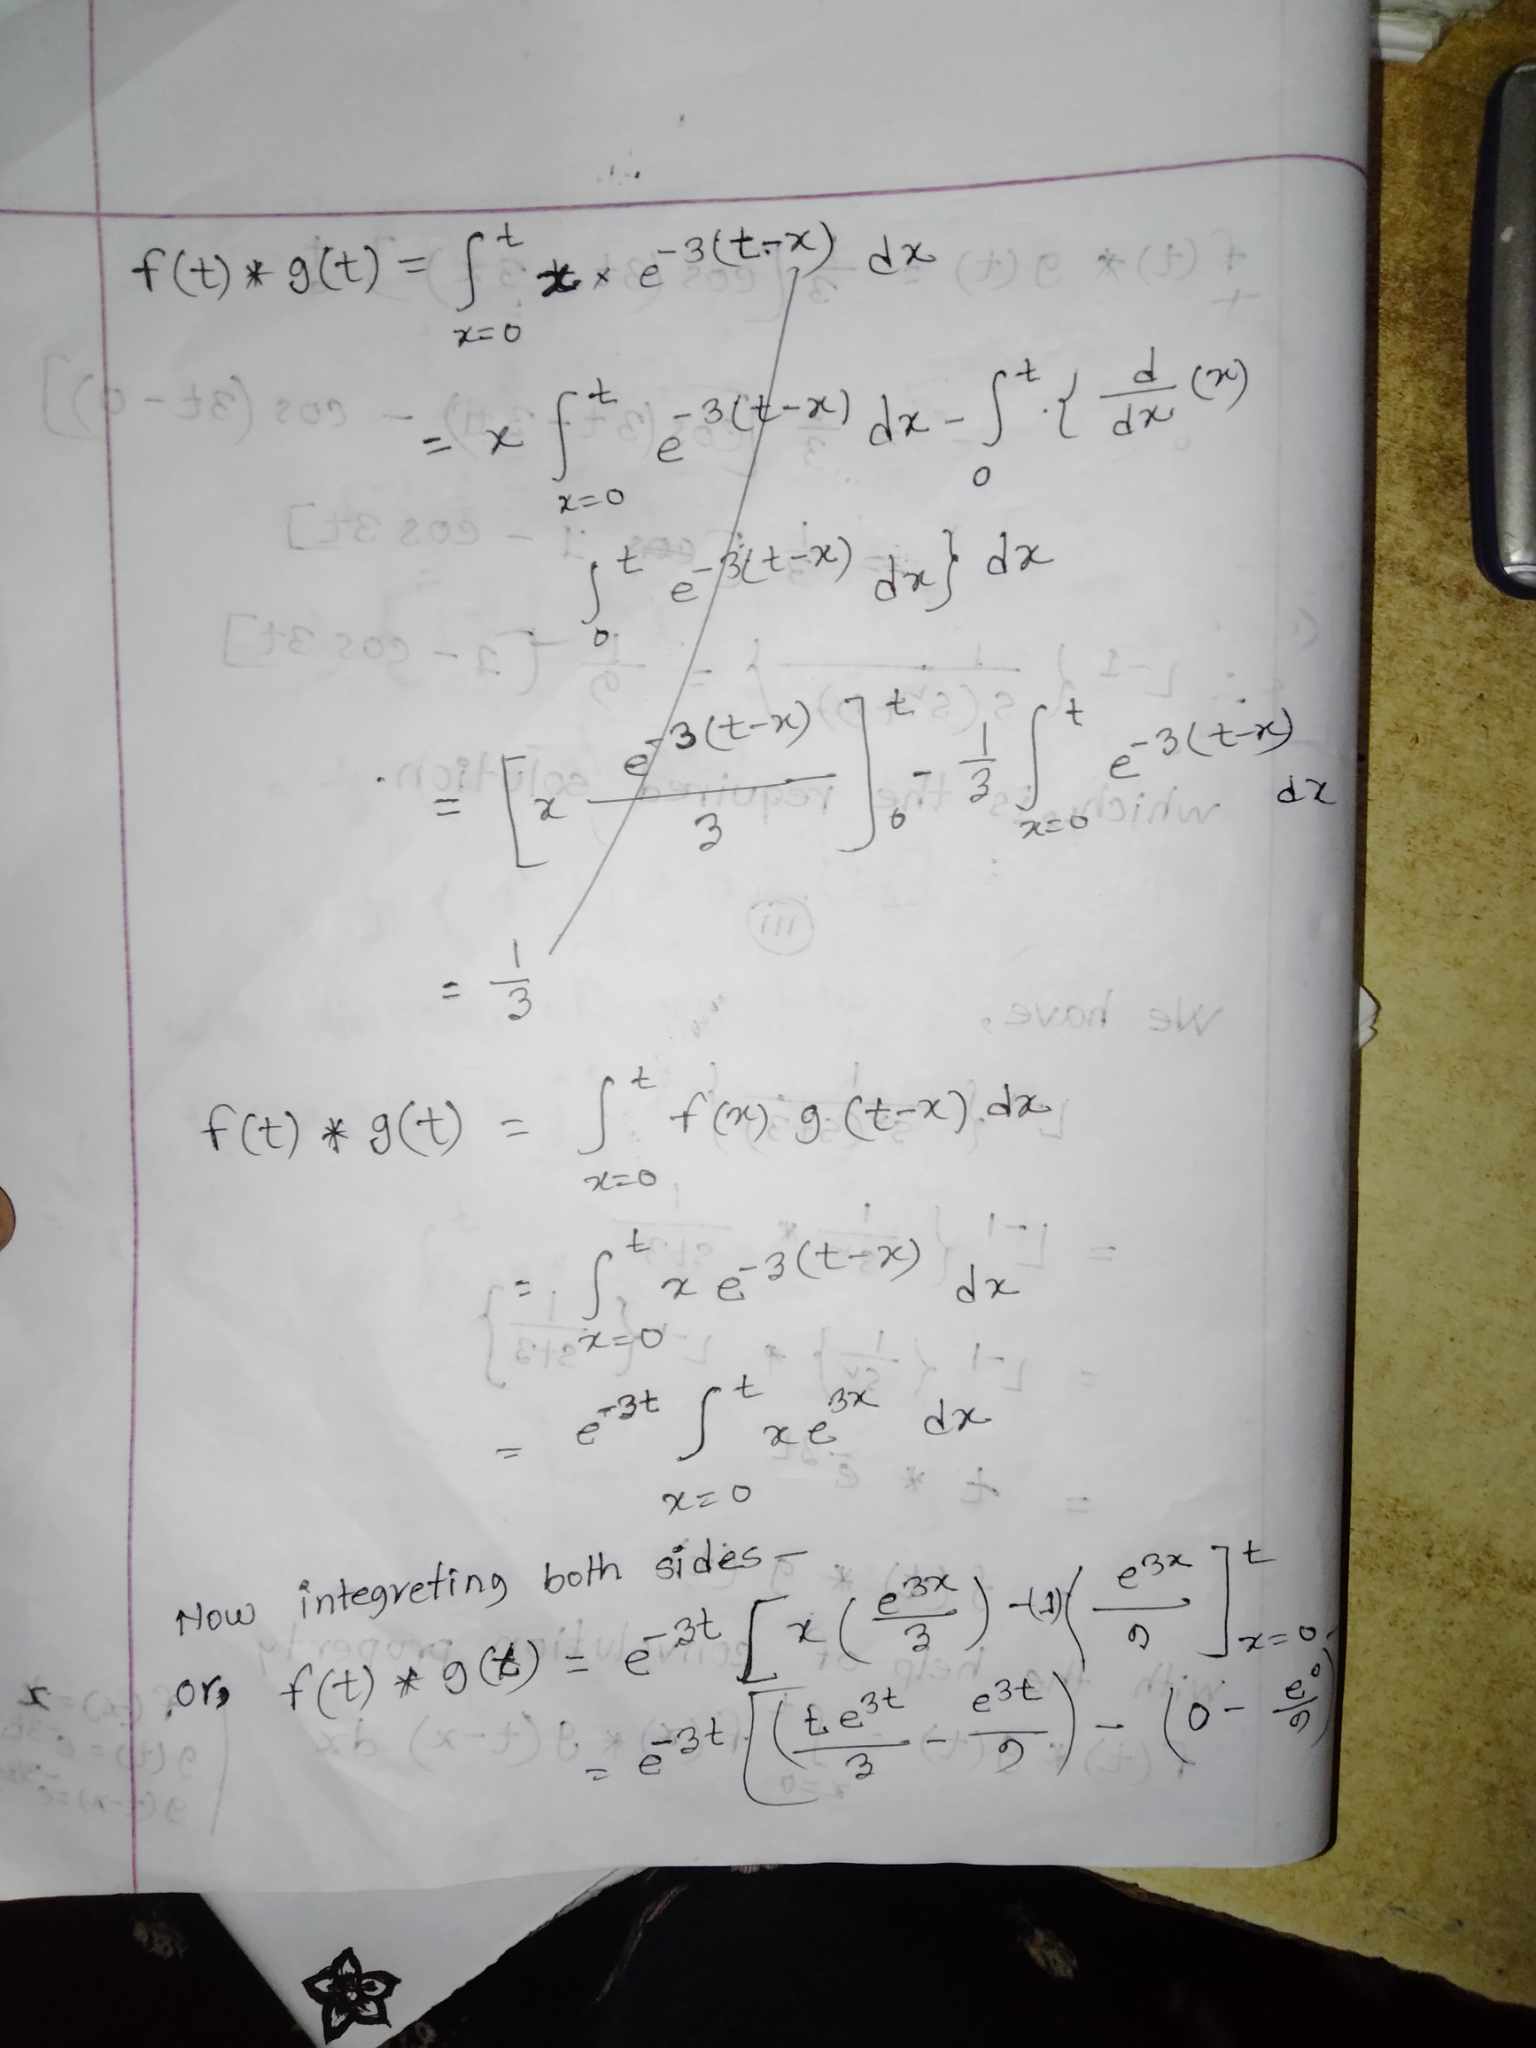 f(t) * g(t) = ∫_{x=0}^{t} x × e^{-3(t-x)} dx
= x ∫_{x=0}^{t} e^{-3(t-x)} dx - ∫_{0}^{t} { d/dx (x)
∫_{0}^{t} e^{-3(t-x)} dx} dx
= [x e^{-3(t-x)}/3]_{0}^{t} - 1/3 ∫_{x=0}^{t} e^{-3(t-x)} dx
= 1/3
f(t) * g(t) = ∫_{x=0}^{t} f(x) g(t-x) dx
= ∫_{x=0}^{t} x e^{-3(t-x)} dx
= e^{-3t} ∫_{x=0}^{t} x e^{3x} dx
Now integreting both sides -
or, f(t) * g(t) = e^{-3t} [x (e^{3x}/3) - (1)(e^{3x}/9]_{x=0}^{t}
= e^{-3t} [(t e^{3t}/3 - e^{3t}/9) - (0 - e^{0}/9)